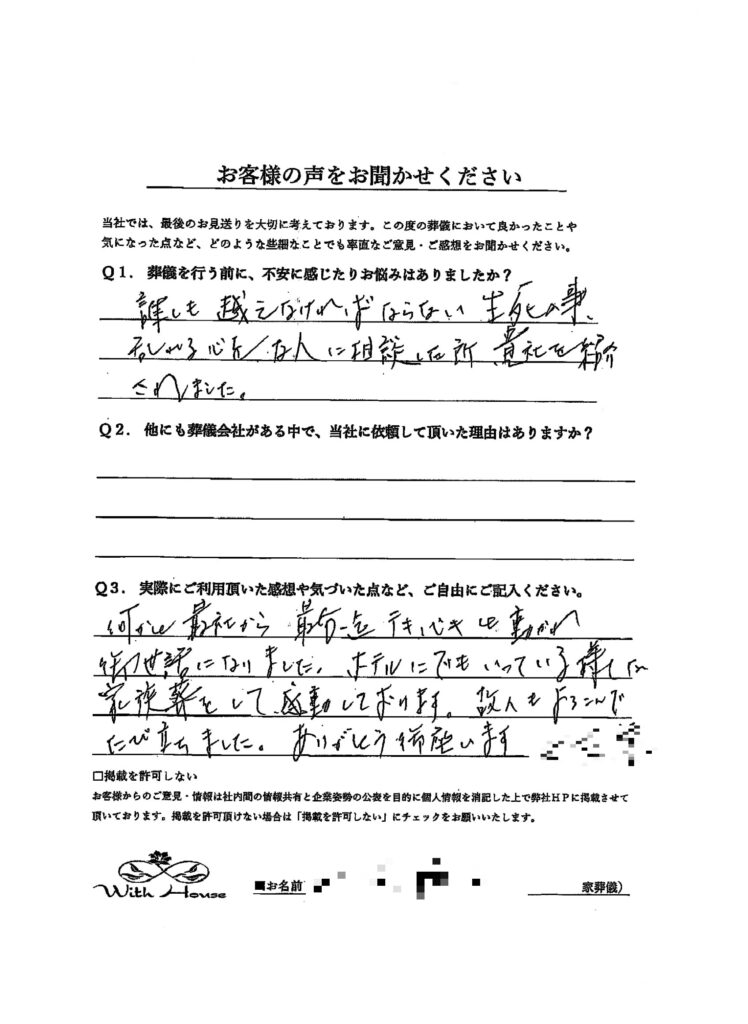 お客様の声をお聞かせください
当社では、最後のお見送りを大切に考えております。この度の葬儀において良かったことや
気になった点など、どのような些細なことでも率直なご意見・ご感想をお聞かせください。
Q1. 葬儀を行う前に、不安に感じたりお悩みはありましたか?
誰しも越えなければならない生死の事、
心 な人に相談した所 貴社を紹介
されました。
Q2. 他にも葬儀会社がある中で、当社に依頼して頂いた理由はありますか?
Q3. 実際にご利用頂いた感想や気づいた点など、ご自由にご記入ください。
何から 最 から 最 点 テキパキと動かれ
御世話になりました。ホテルにでもいっている様な
家族葬をして感動しております。故人もよろこんで
たび立ちました。ありがとう御座います
□掲載を許可しない
お客様からのご意見・情報は社内間の情報共有と企業姿勢の公表を目的に個人情報を消記した上で弊社HPに掲載させて
頂いております。掲載を許可頂けない場合は「掲載を許可しない」にチェックをお願いいたします。
With House
■お名前
家葬儀)